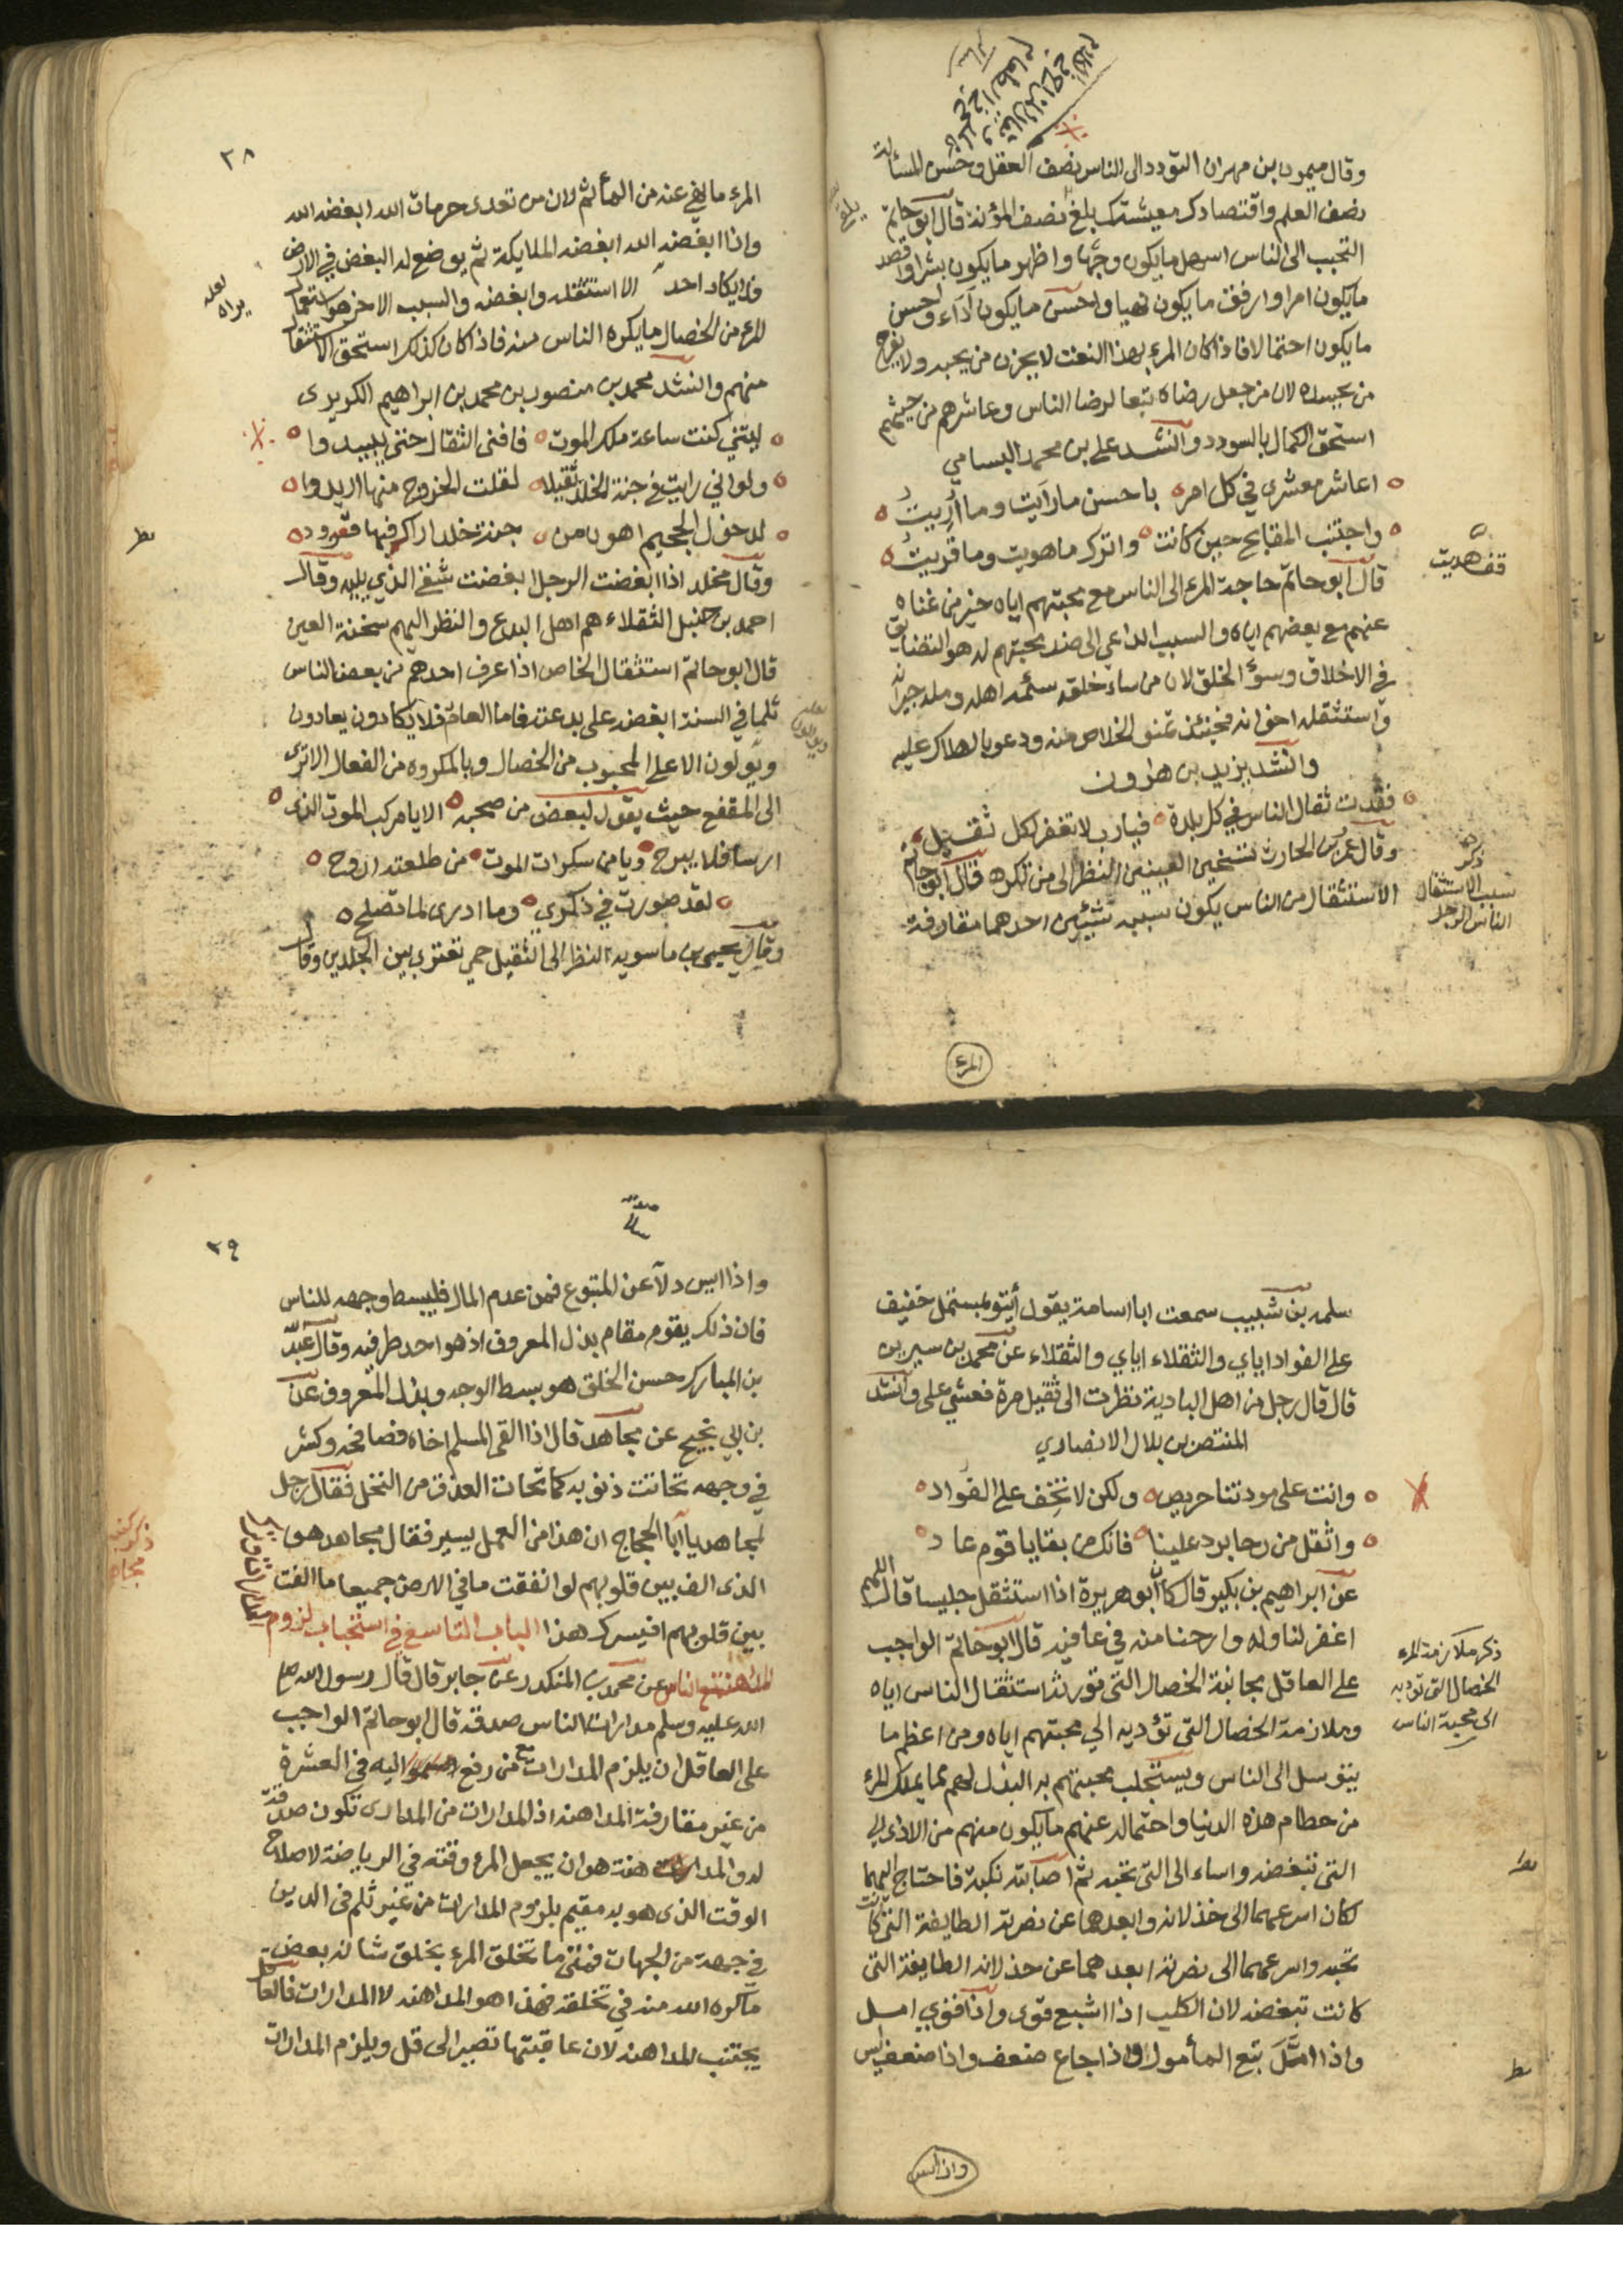 وقال ميمون بن مهران التودد الى الناس نصف العقل وحسن المسألة
نصف العلم واقتصادك معيشتك بلغ نصف المؤنة قال ابو حاتم
التحبب الى الناس اسهل مايكون وجها واظهر مايكون بشرا واقصد
مايكون امرا وارفق مايكون نهيا واحسن مايكون آداء واحسن
مايكون احتمالا فاذا كان المرء بهذا النعت لا يحزن من يحبه ولا يفرح
من يحسده لان من جعل رضاه تبعا لرضا الناس وعاشرهم من حيثهم
استحق الكمال بالسودد وانشد على بن محمد البسامي
اعاشر معشري في كل امر باحسن ما رايت وما اُرِيتُ
واجتنب المقابح حين كانت واترك ما هويت وما قريت
قال ابو حاتم حاجة المرء الى الناس مع محبتهم اياه خير من غناه
عنهم مع بغضهم اياه والسبب الداعي الى ضد محبتهم له هو التضايق
في الاخلاق وسؤ الخلق لان من ساء خلقه سئمه اهله ومله جيرانه
واستثقله اخوانه فحينئذ تمنو الخلاص منه ودعو بالهلاك عليه
وانشد يزيد بن هارون
فقدت ثقال الناس في كل بلدة فيارب لا تغفر لكل ثقيل
وقال عمر بن الحارث تسخين العينين النظر الى من تكره قال ابو حاتم
الاستثقال من الناس يكون سببه شيئين احدهما مقارفة
المرء
قف هديت
ذكر
سبب الاستثقال
الناس الرجل
٣٨
المرء ما نهي عنه من المأثم لان من تعدى حرمات الله ابغضه الله
واذا ابغضه الله ابغضه الملايكة ثم يوضع له البغض في الارض
فلا يكاد احد الا استثقله وابغضه والسبب الاخر هو استعمال
المرء من الخصال مايكره الناس منه فاذا كان كذلك استحق الاستثقال
منهم وانشد محمد بن منصور بن محمد بن ابراهيم الكريرى
ليتني كنت ساعة ملك الموت فافنى الثقال حتى يبيدوا
ولو اني رايت في جنة الخلد ثقيلا لقلت الخروج منها اريدوا
لدخول الجحيم اهون من جنة خلد اراكم فيها قعود
وقال مخلد اذا ابغضت الرجل ابغضت شقي الذي يليه وقال
احمد بن حنبل الثقلاء هم اهل البدع والنظر اليهم سخنة العين
قال ابو حاتم استثقال الخاص اذا عرف احدهم من بعض الناس
ثلما في السنة ابغضه على بدعته فاما العامة فلا يكادون يعادون
ويولون الا على المحبوب من الخصال وبالمكروه من الفعال الا ترى
الى المقفع حيث يقول لبعض من صحبه الا يا مركب الموت الذى
ارسا فلا يبرح ويا من سكرات الموت من طلعته اروح
لقد صورت في ذكرى وما ادرى لما تصلح
وقال يحيى بن ماسويه النظر الى الثقيل حمى تعتري بين الجلدين وقال
لعله
يراه
سلمه بن شبيب سمعت ابا اسامة يقول أيتو بمستمل خفيف
على الفواد اياي والثقلاء اياي والثقلاء عن محمد بن سيرين
قال قال رجل من اهل البادية نظرت الى ثقيل مرة فغشي على وانشد
المنتصر بن بلال الانصاري
وانت على مودتنا حريص ولكن لا تخف على الفواد
واثقل من رحا برد علينا فانك من بقايا قوم عاد
عن ابراهيم بن بكير قال كان ابو هريرة اذا استثقل جليسا قال اللهم
اغفر لنا وله وارحنا منه في عافيه قال ابو حاتم الواجب
على العاقل مجانبة الخصال التي تورثه استثقال الناس اياه
وملازمة الخصال التي تؤديه الى محبتهم اياه ومن اعظم ما
يتوسل الى الناس ويستجلب محبتهم به البذل لهم مما يملك المرء
من حطام هذه الدنيا واحتماله عنهم ما يكون منهم من الاذى
التي تبغضه واساء الى التي تحبه ثم اصابته نكبة فاحتاج اليهما
لكان اسرعهما الى خذلانه وابعدهما عن نصرته الطايفة التي كانت
تحبه واسرعهما الى نصرته ابعدهما عن خذلانه الطايفة التي
كانت تبغضه لان الكلب اذا اشبع قوى واذا قوي امل
واذا امَّل تبع المأمول واذا جاع ضعف واذا ضعف ايس
واذا ايس
ذكر ملازمة المرء
الخصال التي توديه
الى محبة الناس
٣٩
واذا ايس ولاّ عن المتبوع فمن عدم المال فليبسط وجهه للناس
فان ذلك يقوم مقام بذل المعروف اذ هو احد طرفيه وقال عبد الله
بن المبارك حسن الخلق هو بسط الوجه وبذل المعروف عن
بن ابي نجيح عن مجاهد قال اذا لقي المسلم اخاه فصافحه وكشر
في وجهه تحاتت ذنوبه كما تحات العذق من النخل فقال رجل
لمجاهد يا ابا الحجاج ان هذا من العمل يسير فقال مجاهد هو
الذى الف بين قلوبهم لو انفقت ما في الارض جميعا ما الفت
بين قلوبهم افيسرك هذا الباب التاسع في استحباب لزوم
المداهنة مع الناس عن محمد بن المنكدر عن جابر قال قال رسول الله صلى
الله عليه وسلم مدارات الناس صدقة قال ابو حاتم الواجب
على العاقل ان يلزم المدارات مع من رفع اليه في العشرة
من غير مقارفة المداهنه اذ المدارات من المدارى تكون صدقة
له والمداهنة هو ان يجعل المرء وقته في الرياضة لاصلاح
الوقت الذى هو به مقيم بلزوم المدارات من غير ثلم في الدين
في جهة من الجهات فمتى ما تخلق المرء بخلق شانه بعض
ماكره الله منه في تخلقه فهذا هو المداهنه لا المدارات فالعاقل
يجتنب المداهنه لان عاقبتها تصير الى قل ويلزم المدارات